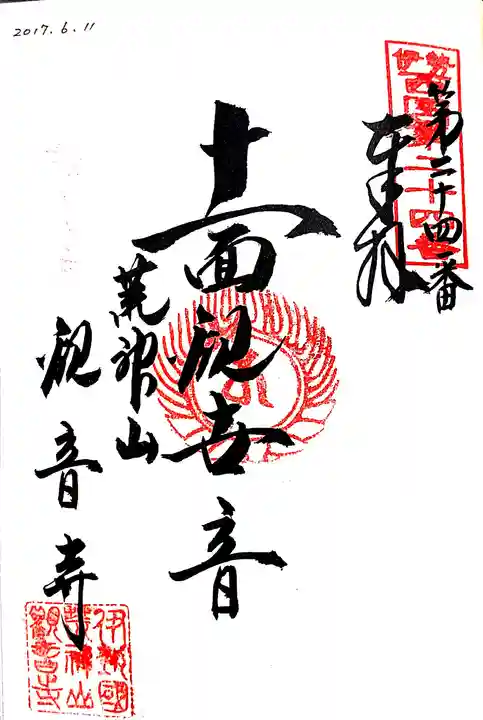 2017.6.11
第二十四番
奉拝
十一面観世音
荒神山
観音寺
伊勢國
荒神山
観音寺